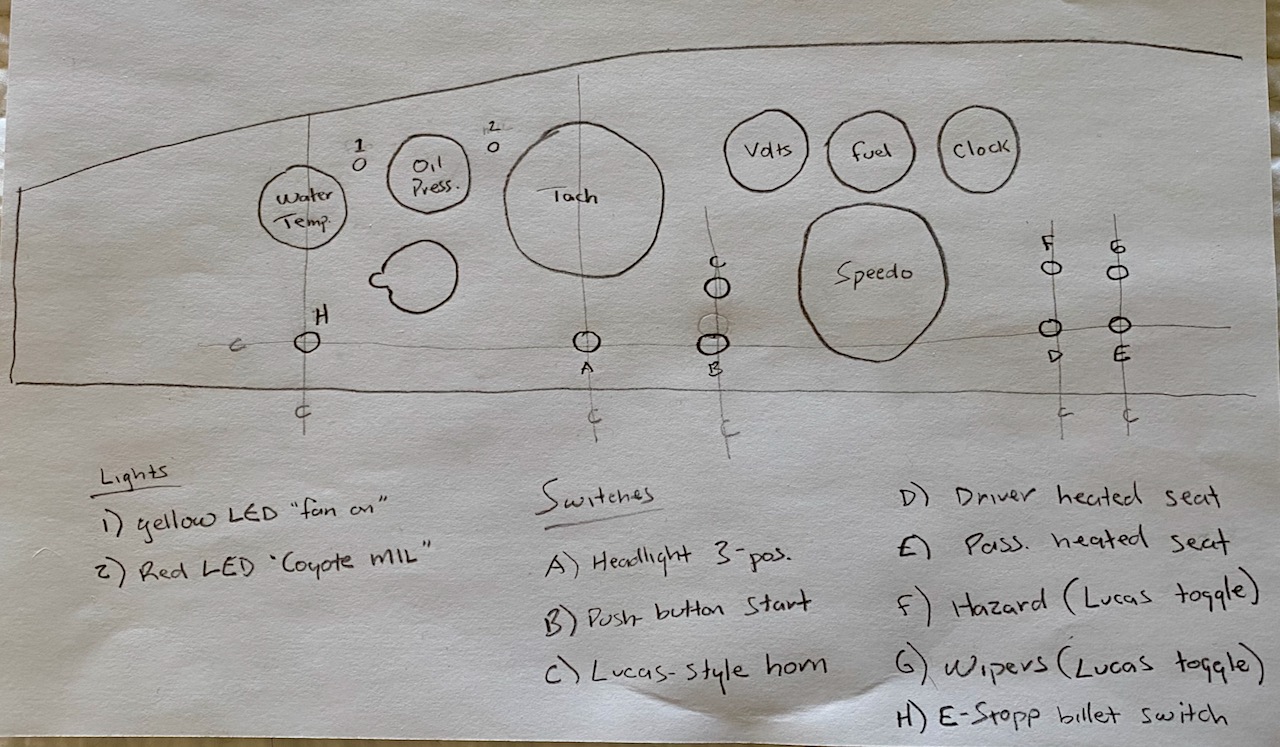 1
2
Oil
Press.
Volts
fuel
Clock
Water
Temp.
Tach
C
F
G
Speedo
H
C
A
B
D
E
C
C
C
C
C
Lights
1) yellow LED "fan on"
2) Red LED "Coyote MIL"
Switches
A) Headlight 3-pos.
B) Push button start
C) Lucas-style horn
D) Driver heated seat
E) Pass. heated seat
F) Hazard (Lucas toggle)
G) Wipers (Lucas toggle)
H) E-Stopp billet switch